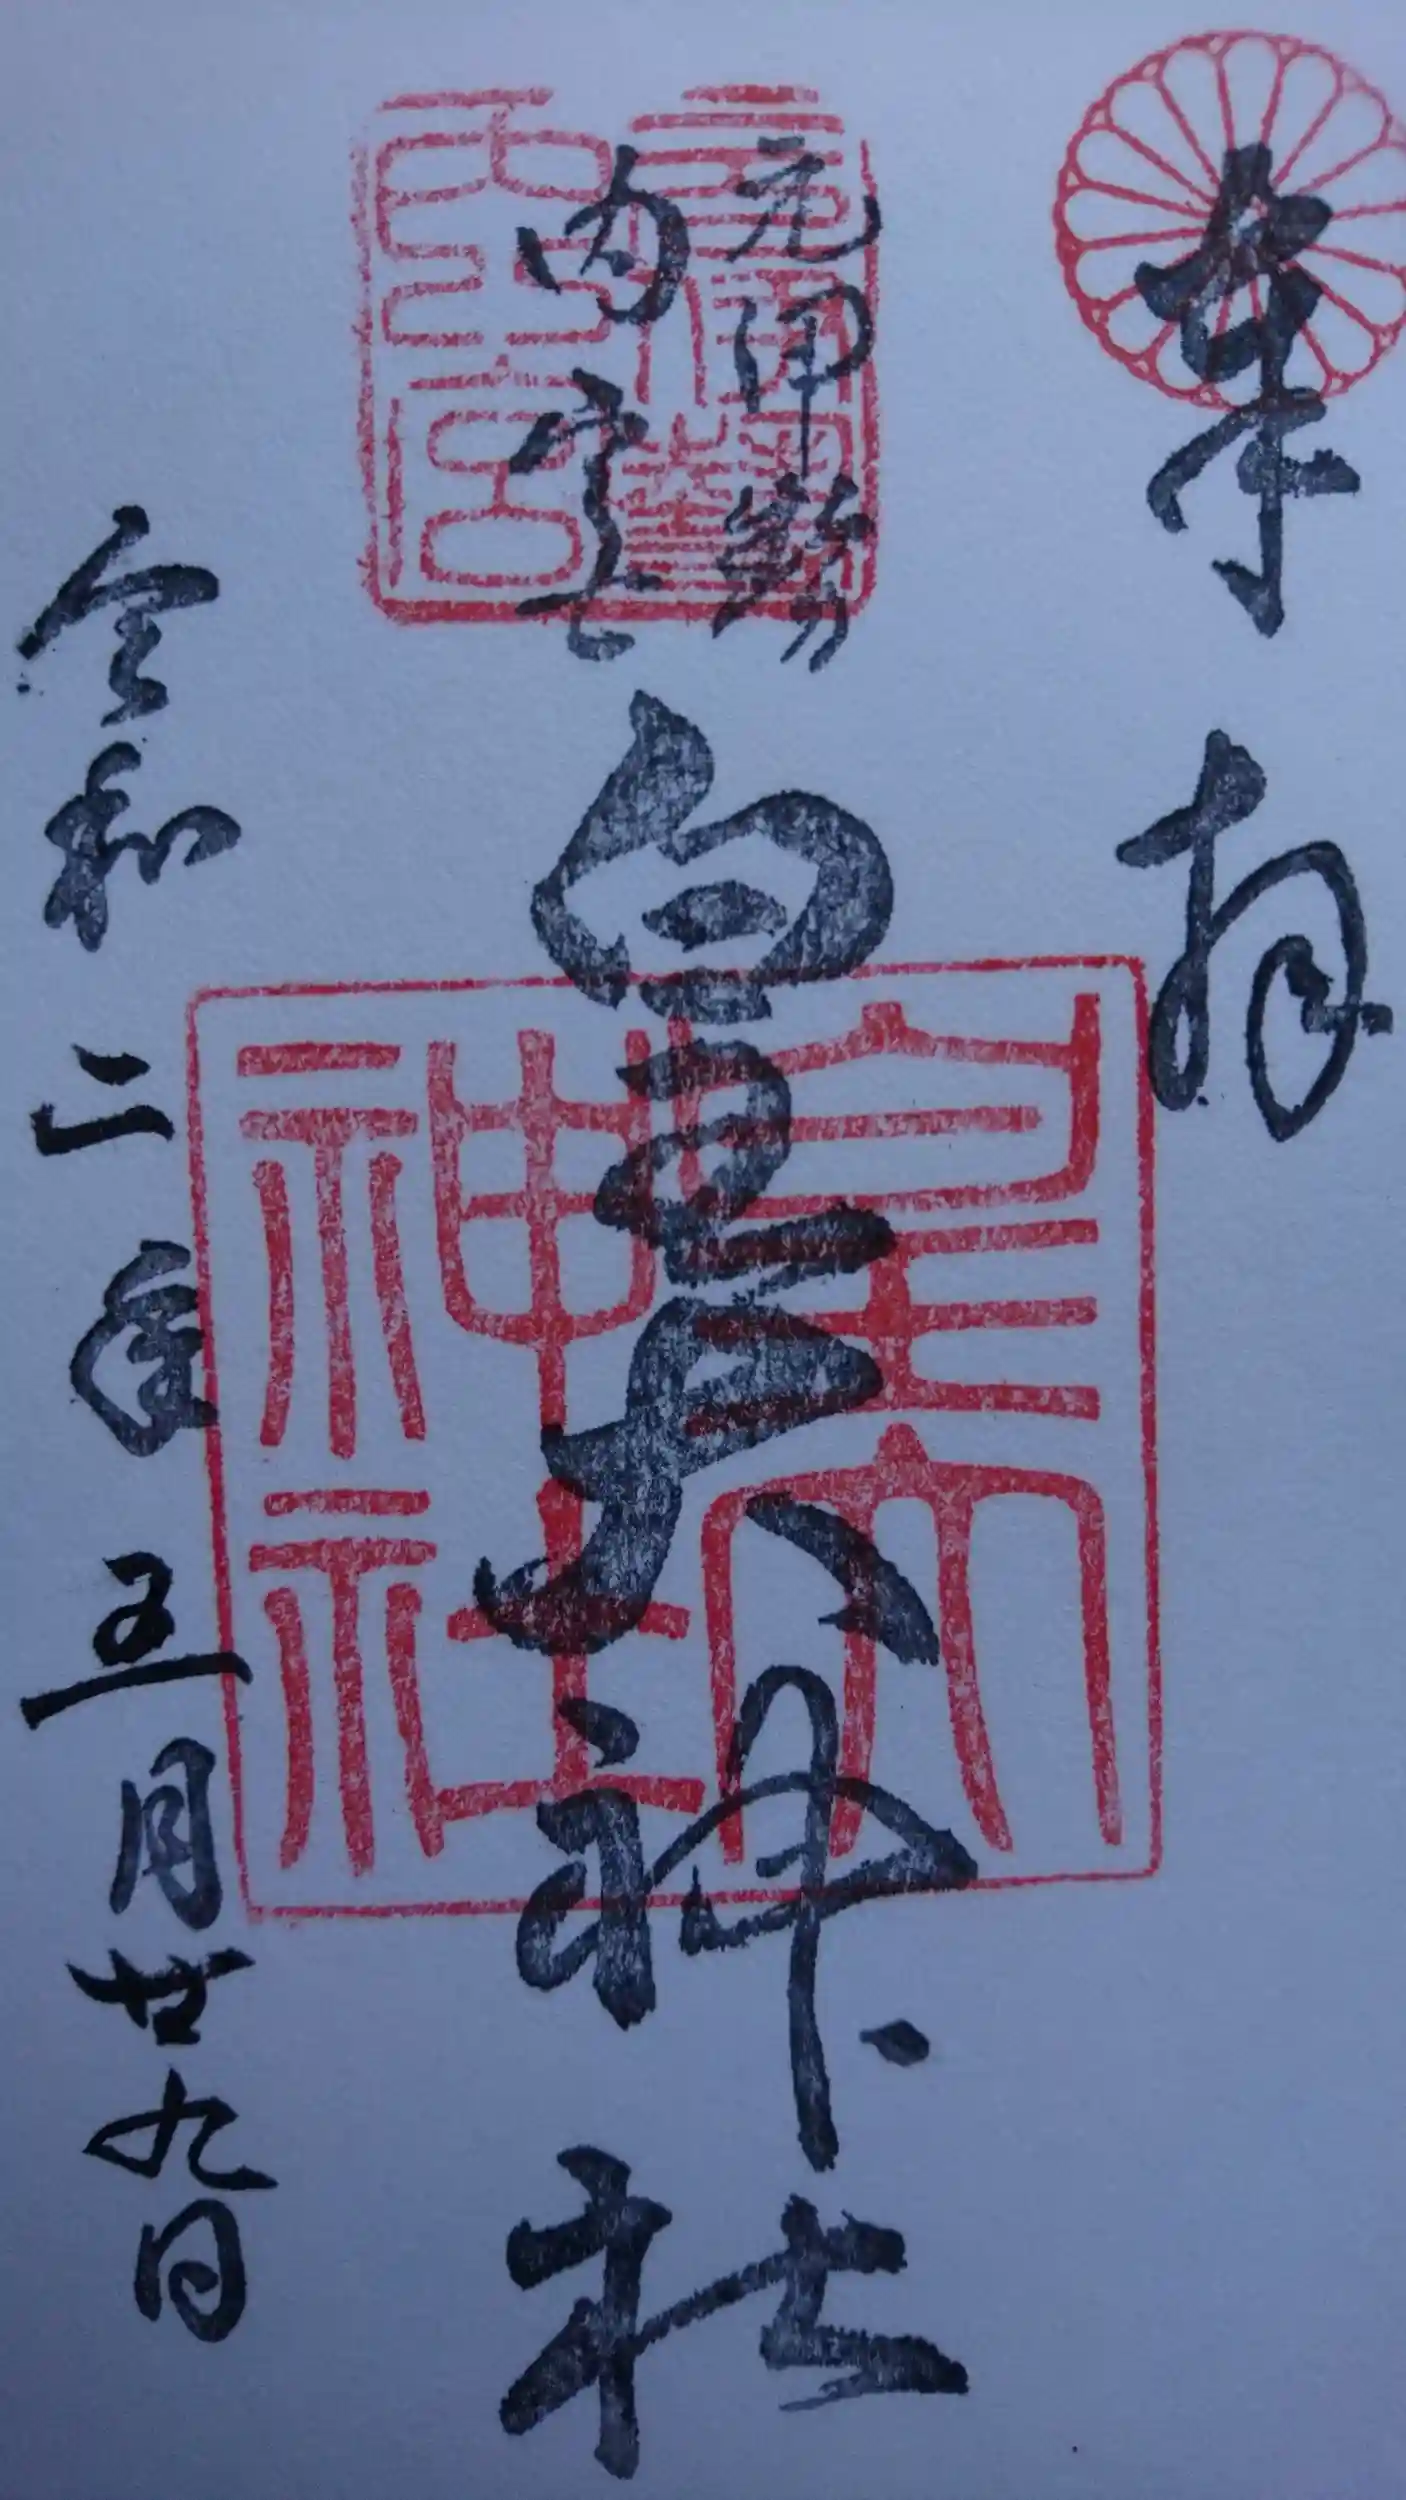 奉拝
元伊勢
内宮
皇大神社
令和二年五月廿九日
皇大
神社